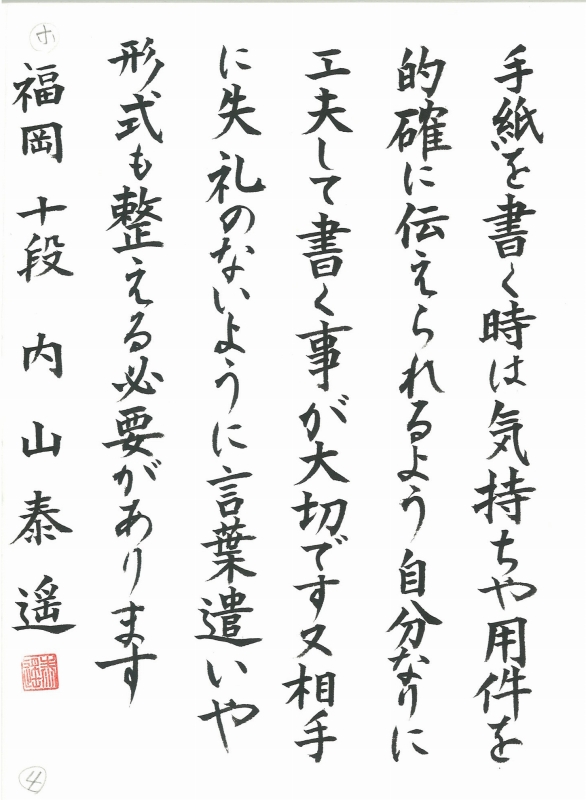 手紙を書く時は気持ちや用件を
的確に伝えられるよう自分なりに
工夫して書く事が大切です又相手
に失礼のないように言葉遣いや
形式も整える必要があります
福岡 十段 内山泰遥
ホ
4